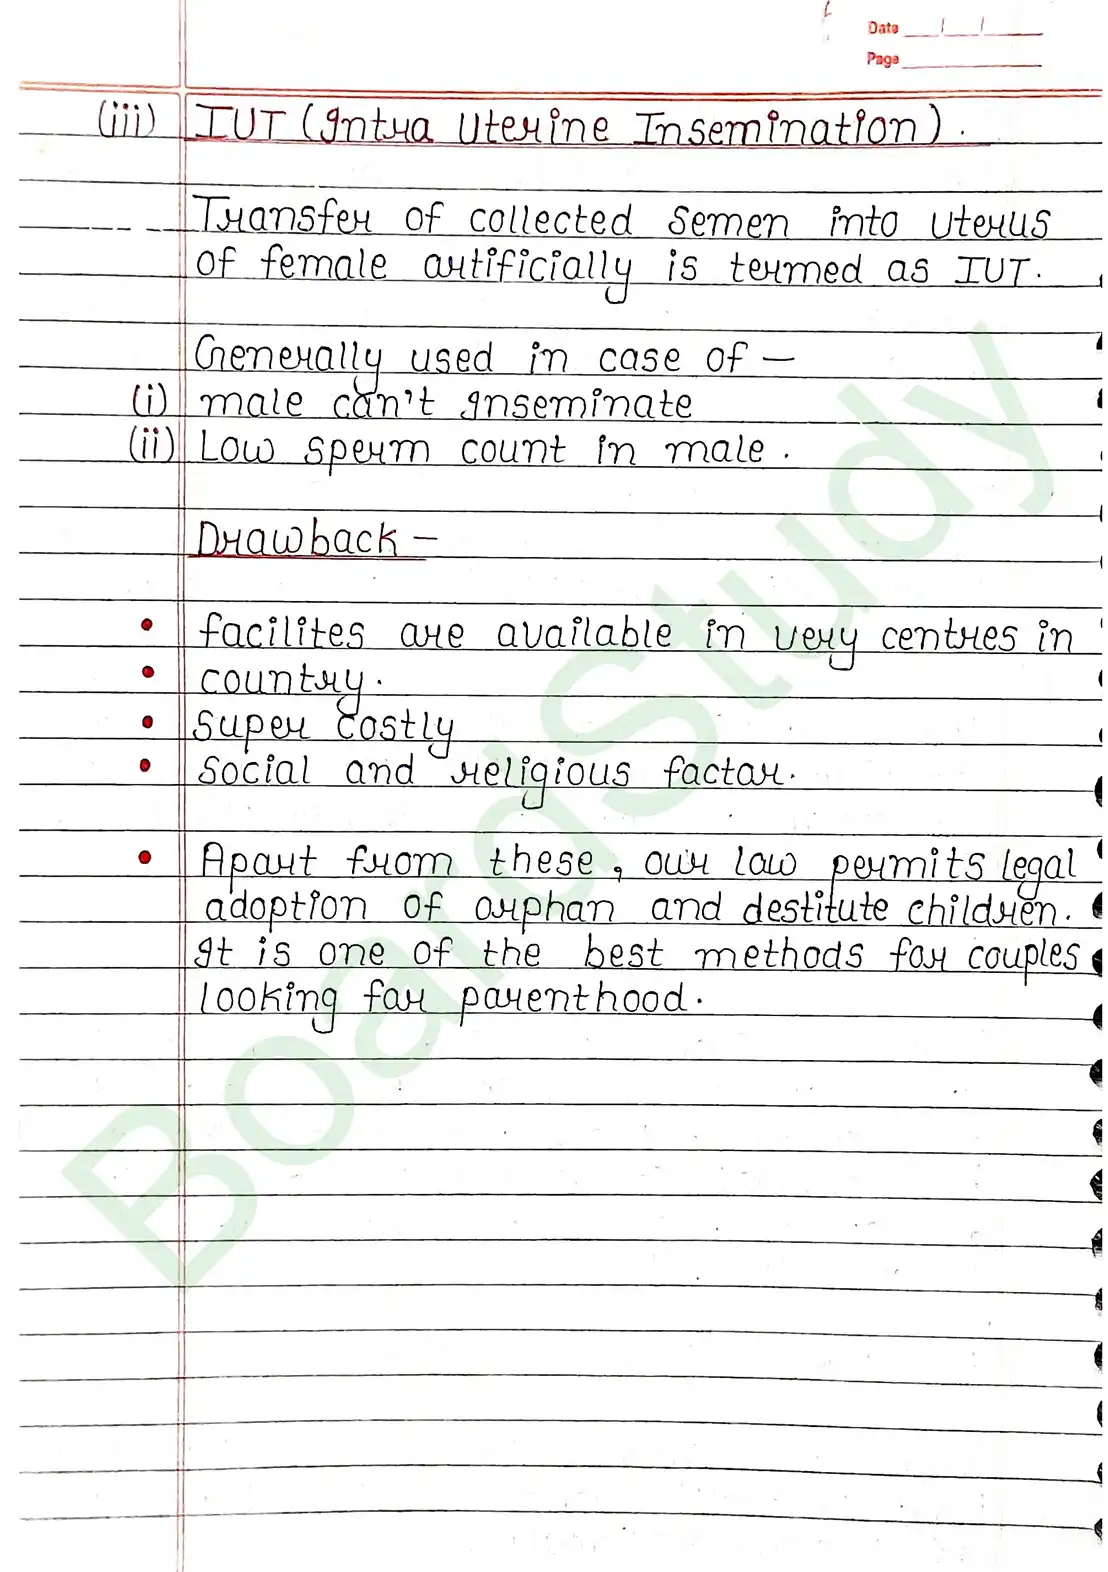 Date
Page
(iii) IUT (Intra Uterine Insemination).
Transfer of collected semen into uterus
of female artificially is termed as IUT.
Generally used in case of –
(i) male can't Inseminate
(ii) Low sperm count in male.
Drawback –
• facilites are available in very centres in
• country.
• Super costly
• Social and religious factor.
• Apart from these, our law permits legal
adoption of orphan and destitute children.
It is one of the best methods for couples
looking for parenthood.
BoardStudy